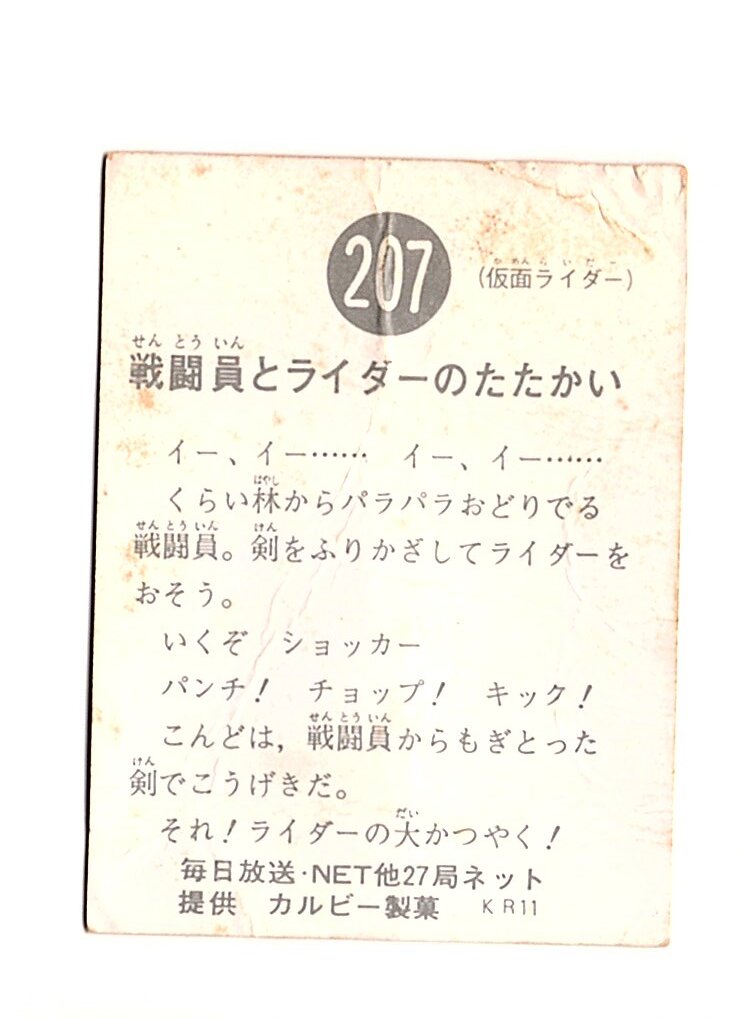 207
かめんらいだー
(仮面ライダー)
せんとういん
戦闘員とライダーのたたかい
イー、イー…… イー、イー……
はやし
くらい林からパラパラおどりでる
せんとういん けん
戦闘員。剣をふりかざしてライダーを
おそう。
いくぞ ショッカー
パンチ! チョップ! キック!
せんとういん
こんどは,戦闘員からもぎとった
けん
剣でこうげきだ。
だい
それ!ライダーの大かつやく!
毎日放送・NET他27局ネット
提供 カルビー製菓 KR11